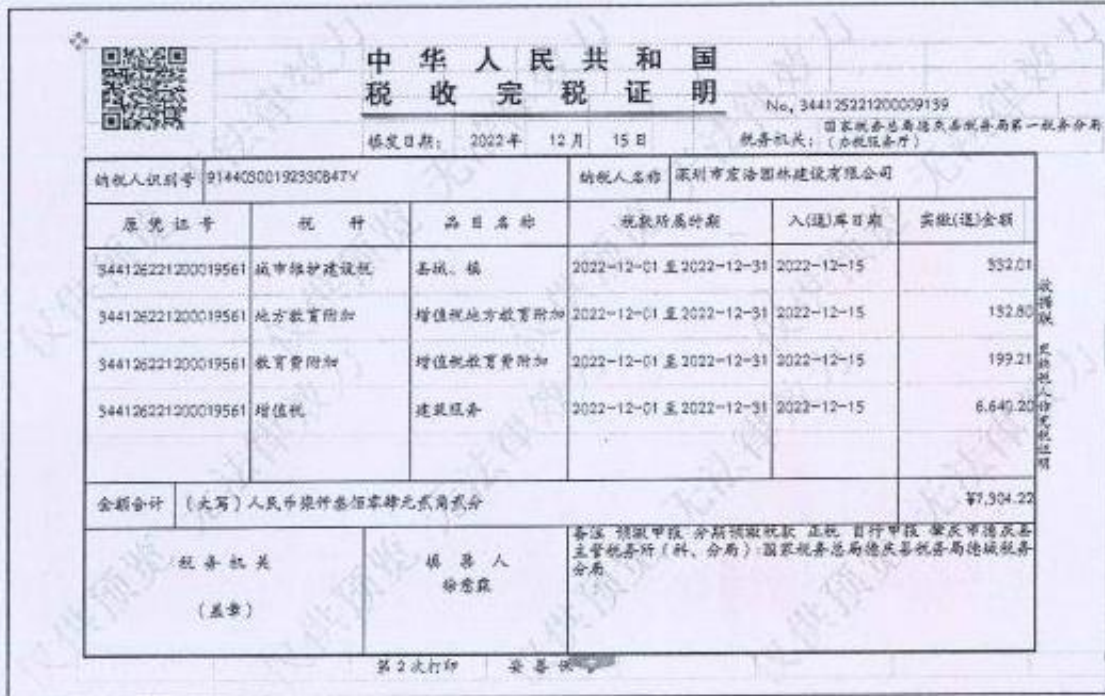 中华人民共和国
税收完税证明
No. 344125221200009139
填发日期： 2022年 12月 15日
税务机关：国家税务总局德庆县税务局第一税务分局（办税服务厅）
纳税人识别号 91440300192330847Y 纳税人名称 深圳市宏浩园林建设有限公司
原凭证号 税种 品目名称 税款所属时期 入(退)库日期 实缴(退)金额
344126221200019561 城市维护建设税 县城、镇 2022-12-01 至 2022-12-31 2022-12-15 332.01
344126221200019561 地方教育附加 增值税地方教育附加 2022-12-01 至 2022-12-31 2022-12-15 132.80
344126221200019561 教育费附加 增值税教育费附加 2022-12-01 至 2022-12-31 2022-12-15 199.21
344126221200019561 增值税 建筑服务 2022-12-01 至 2022-12-31 2022-12-15 6,640.20
金额合计 （大写）人民币柒仟叁佰零肆元贰角贰分 ¥7,304.22
税务机关
（盖章）
填票人
备注 预缴申报 分期预缴税款 正税 自行申报 肇庆市德庆县
主管税务所（科、分局）：国家税务总局德庆县税务局德城税务
分局
收据联 交纳税人作完税证明
第2次打印 妥善保
仅供预览 无法律效力